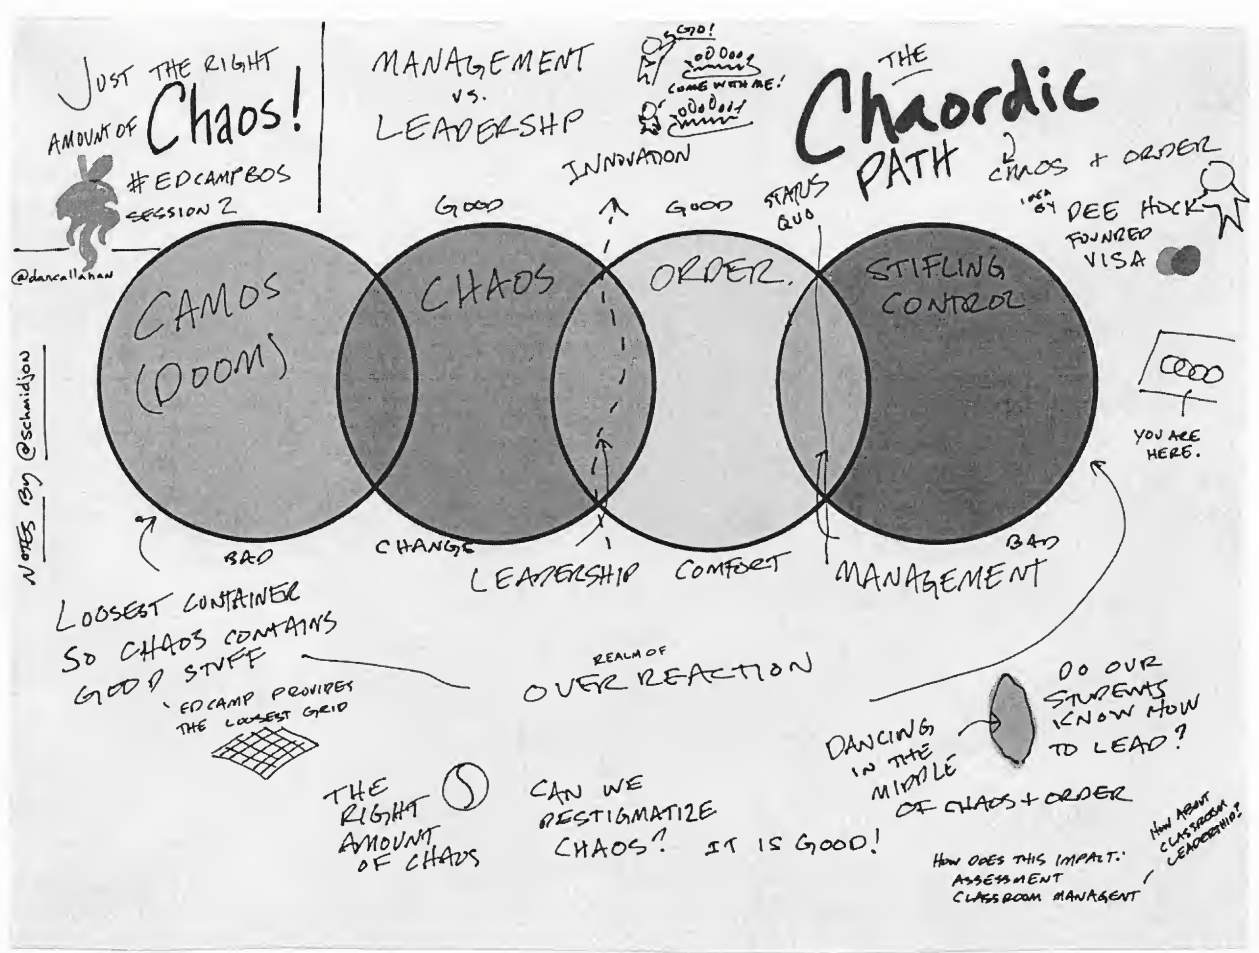 JUST THE RIGHT
AMOUNT OF Chaos!
#EDCAMPBOS
SESSION 2
@dancallahan
NOTES BY @schmidjon
MANAGEMENT
VS.
LEADERSHP
GO!
COME WITH ME!
THE
Chaordic
PATH
CHAOS + ORDER
IDEA
BY
DEE HOCK
FOUNDED
VISA
INNOVATION
GOOD
GOOD
STATUS
QUO
CAMOS
(DOOM)
CHAOS
ORDER.
STIFLING
CONTROL
YOU ARE
HERE.
BAD
CHANGE
LEADERSHIP
COMFORT
MANAGEMENT
BAD
LOOSEST CONTAINER
SO CHAOS CONTAINS
GOOD STUFF
EDCAMP PROVIDES
THE LOOSEST GRID
REALM OF
OVER REACTION
DANCING
IN THE
MIDDLE
OF CHAOS + ORDER
DO OUR
STUDENTS
KNOW HOW
TO LEAD?
THE
RIGHT
AMOUNT
OF CHAOS
CAN WE
DESTIGMATIZE
CHAOS? IT IS GOOD!
HOW DOES THIS IMPACT:
ASSESSMENT
CLASSROOM MANAGENT
HOW ABOUT
CLASSROOM
LEADERSHIP?